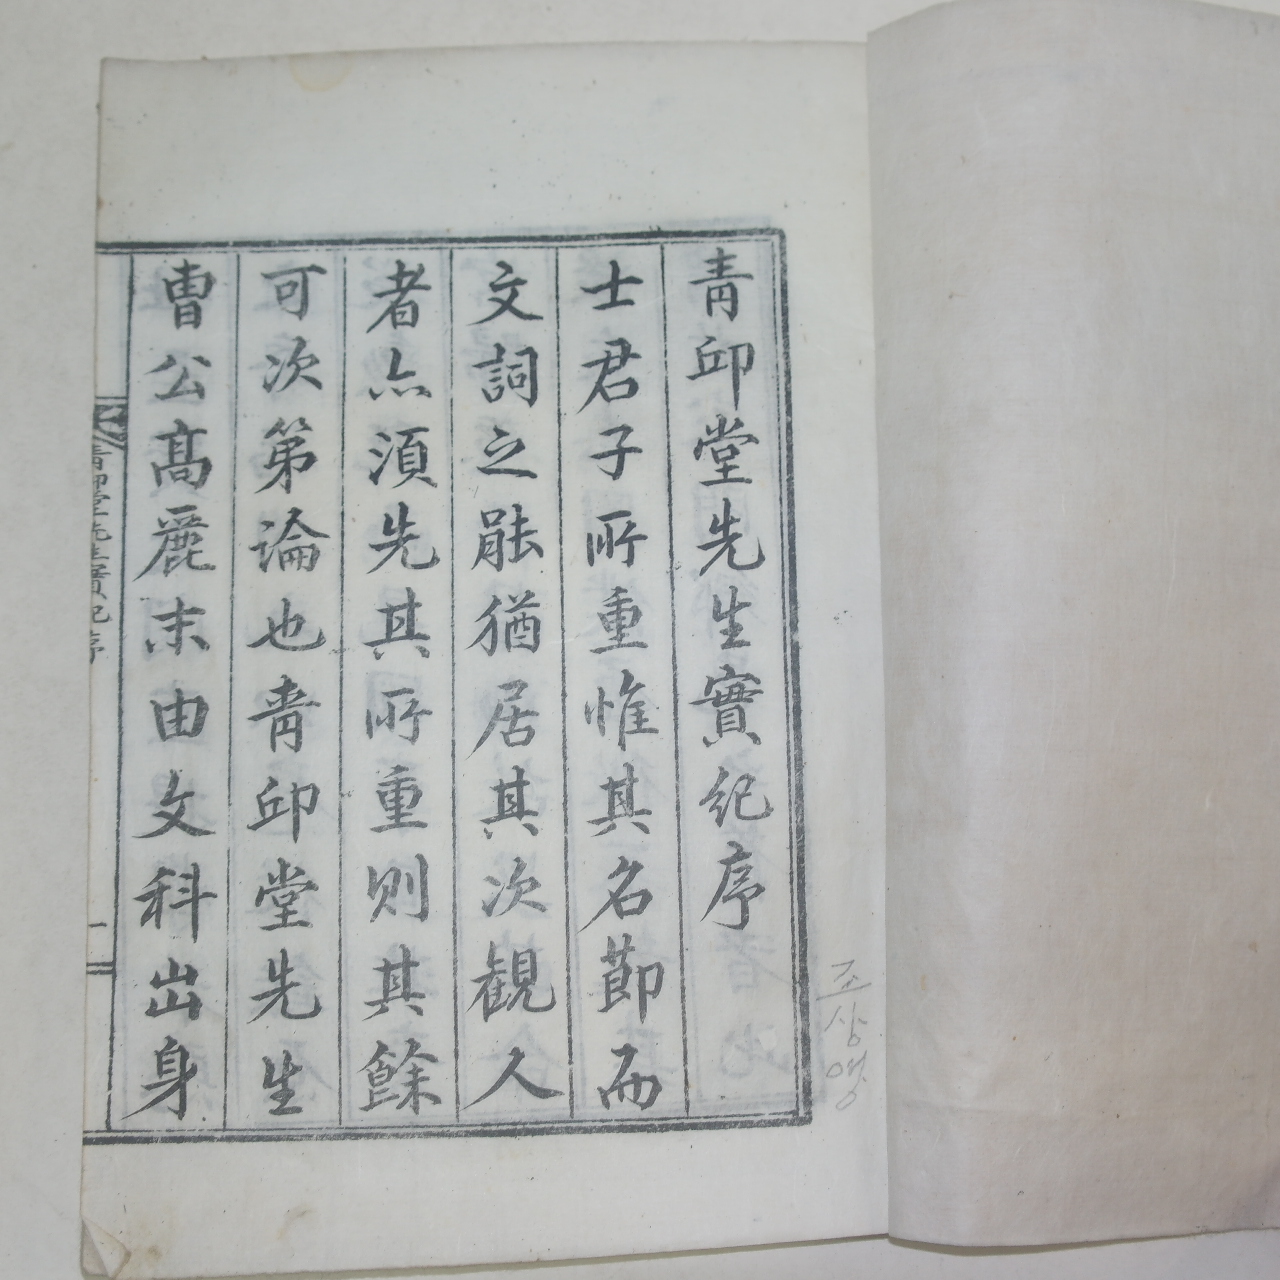 靑邱堂先生實紀序
士君子所重惟其名節而
文詞之能猶居其次觀人
者亦須先其所重則其餘
可次第論也靑邱堂先生
曺公高麗末由文科出身
靑邱堂先生實紀序
一
조상영